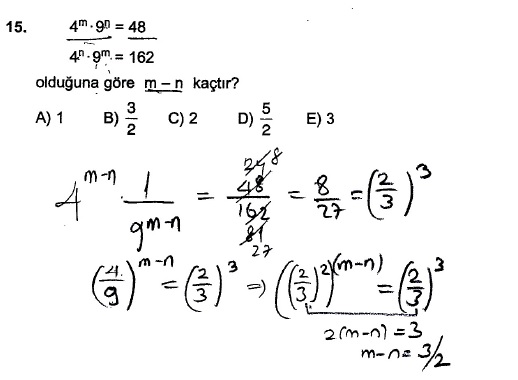 15. 4ᵐ · 9ⁿ = 48
4ⁿ · 9ᵐ = 162
olduğuna göre m – n kaçtır?
A) 1 B) 3/2 C) 2 D) 5/2 E) 3
4^(m-n) · 1/9^(m-n) = 48/162 24 8 81 27 = 8/27 = (2/3)^3
(4/9)^(m-n) = (2/3)^3 => ((2/3)^2)^(m-n) = (2/3)^3
2(m-n) = 3
m-n = 3/2